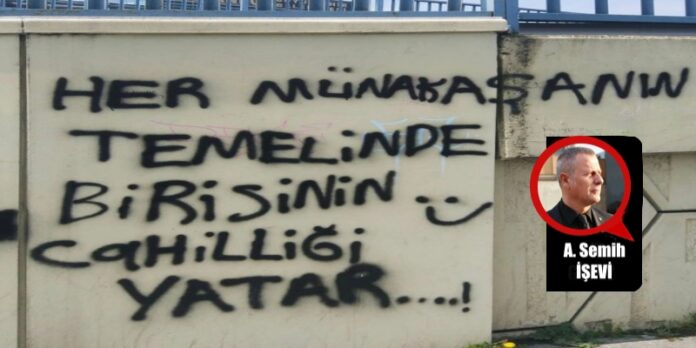 HER MÜNAKAŞANIN
TEMELİNDE
BİRİSİNİN :)
CAHİLLİĞİ
YATAR....!
A. Semih
İŞEVİ